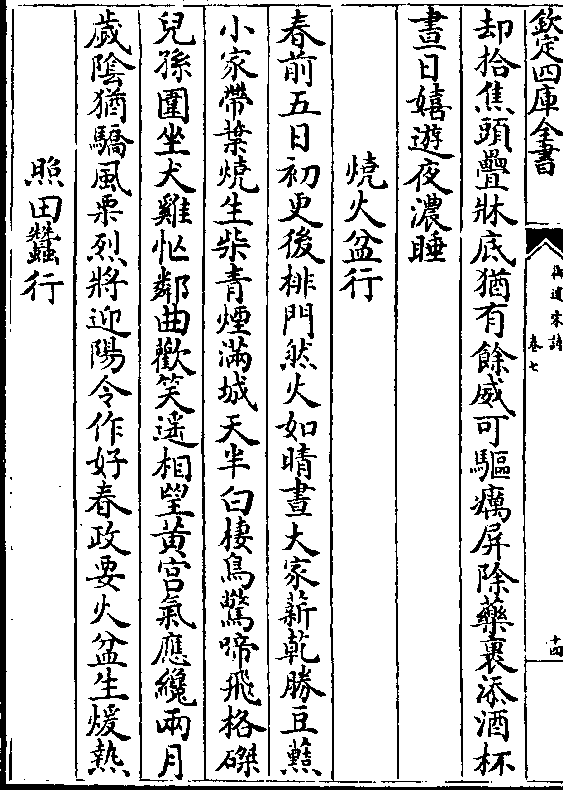 欽定四庫全書
御選宋詩
卷七
十四
却拾焦頭疊牀底猶有餘威可驅癘屏除藥裹添酒杯
晝日嬉遊夜濃睡
燒火盆行
春前五日初更後排門然火如晴晝大家薪乾勝豆䕸
小家帶葉燒生柴青煙滿城天半白棲鳥驚啼飛格磔
兒孫圍坐犬雞忙鄰曲歡笑遥相望黄宫氣應纔兩月
歲隂猶驕風栗烈將迎陽令作好春政要火盆生煖熱
照田蠶行